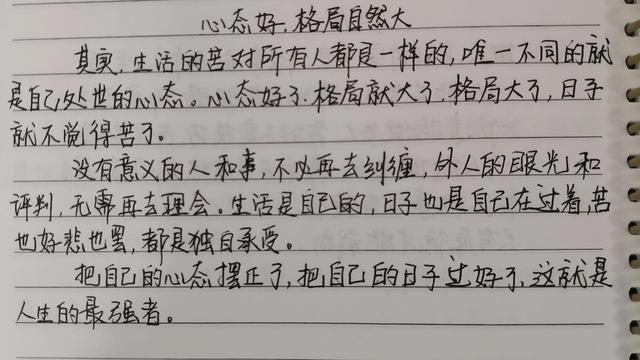 心态好，格局自然大
其实，生活的苦对所有人都是一样的，唯一不同的就
是自己处世的心态。心态好了，格局就大了，格局大了，日子
就不觉得苦了。
没有意义的人和事，不必再去纠缠，外人的眼光和
评判，无需再去理会。生活是自己的，日子也是自己在过着，苦
也好悲也罢，都是独自承受。
把自己的心态摆正了，把自己的日子过好了，这就是
人生的最强者。